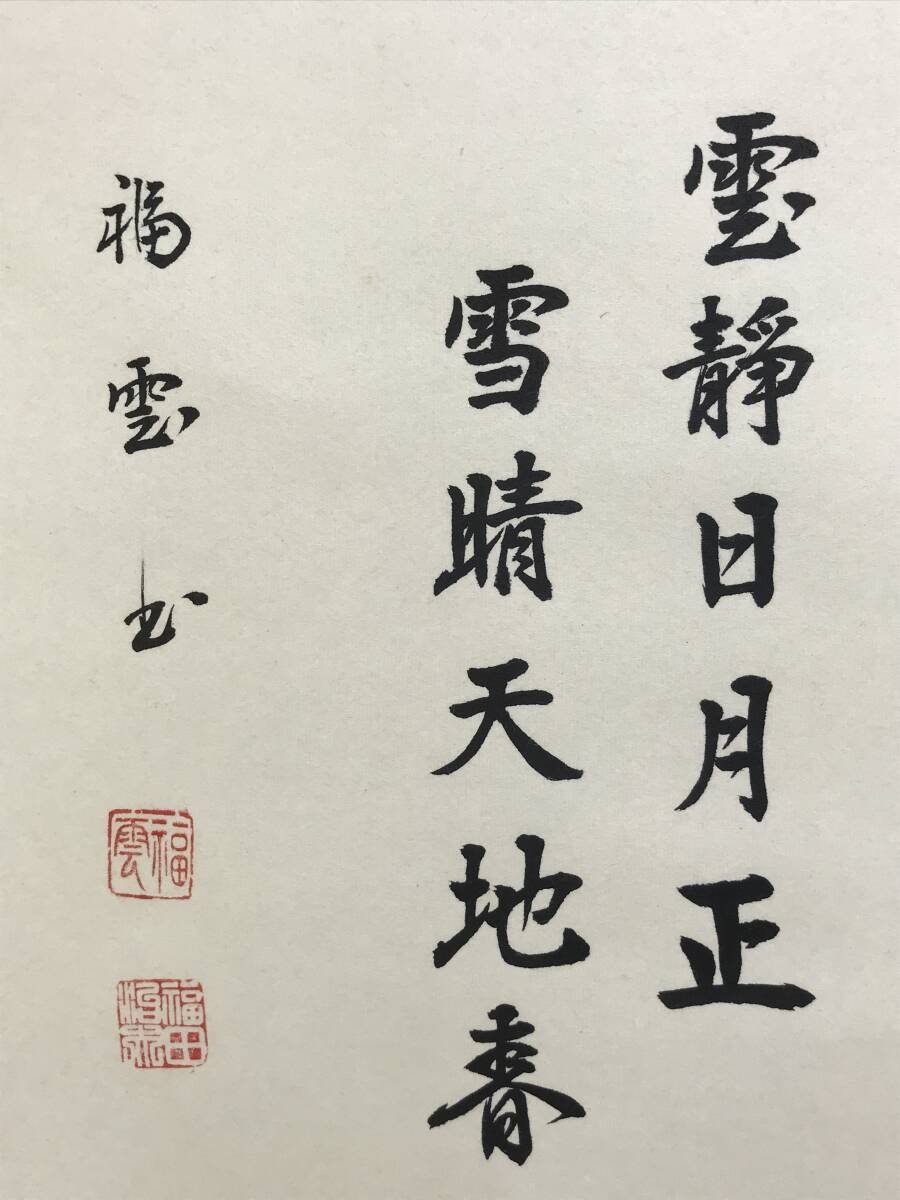 雲靜日月正
雪晴天地春
福雲書
福雲
福田